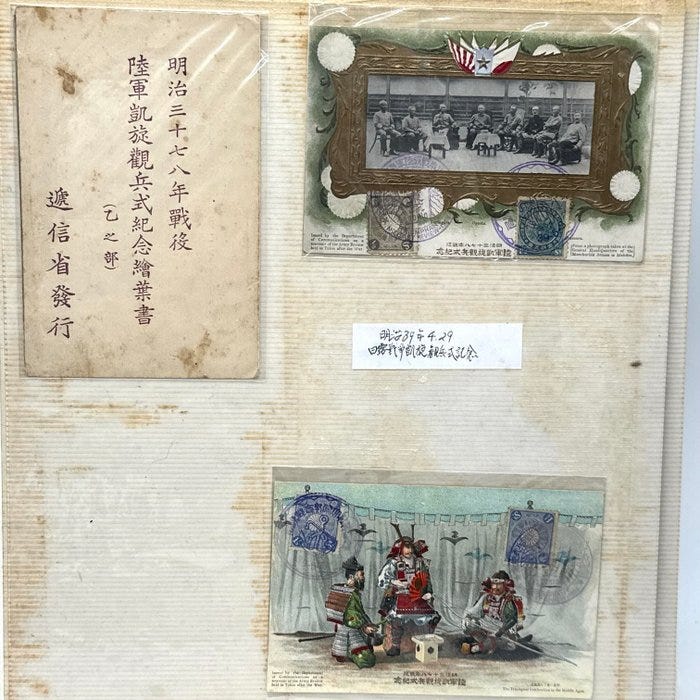 明治三十七八年戰役
陸軍凱旋觀兵式紀念繪葉書
（乙之部）
遞信省發行
Issued by the Department
of Communications as a
souvenir of the Army Review
held in Tokio after the War.
明治三十七八年戰役
陸軍凱旋觀兵式紀念
(From a photograph taken at the
General Headquarters of the
Manchurian Armies in Mukden)
明治39年4.29
日露戦争凱旋観兵式記念
Issued by the Department
of Communications as a
souvenir of the Army Review
held in Tokio after the War.
明治三十七八年戰役
陸軍凱旋觀兵式紀念
The Triumphal Celebration in the Middle Ages.